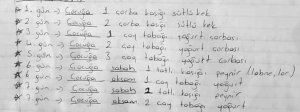 * 1. gün → Çocuğa 1 çorba kaşığı sütlü kek
* 2. gün → Çocuğa 2 çorba kaşığı sütlü kek
* 3. gün → Çocuğa 1 çay tabağı yoğurt çorbası
* 4. gün → Çocuğa 2 çay tabağı yoğurt çorbası
* 5. gün → Çocuğa 3 çay tabağı yoğurt çorbası
* 6. gün → Çocuğa sabah 1 tatlı kaşığı peynir (labne, lor)
* 6. gün → Çocuğa akşam 1 çay tabağı yoğurt
* 7. gün → Çocuğa sabah 2 tatlı kaşığı peynir
* 7. gün → Çocuğa akşam 2 çay tabağı yoğurt